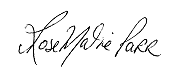 Rose Marie Parr